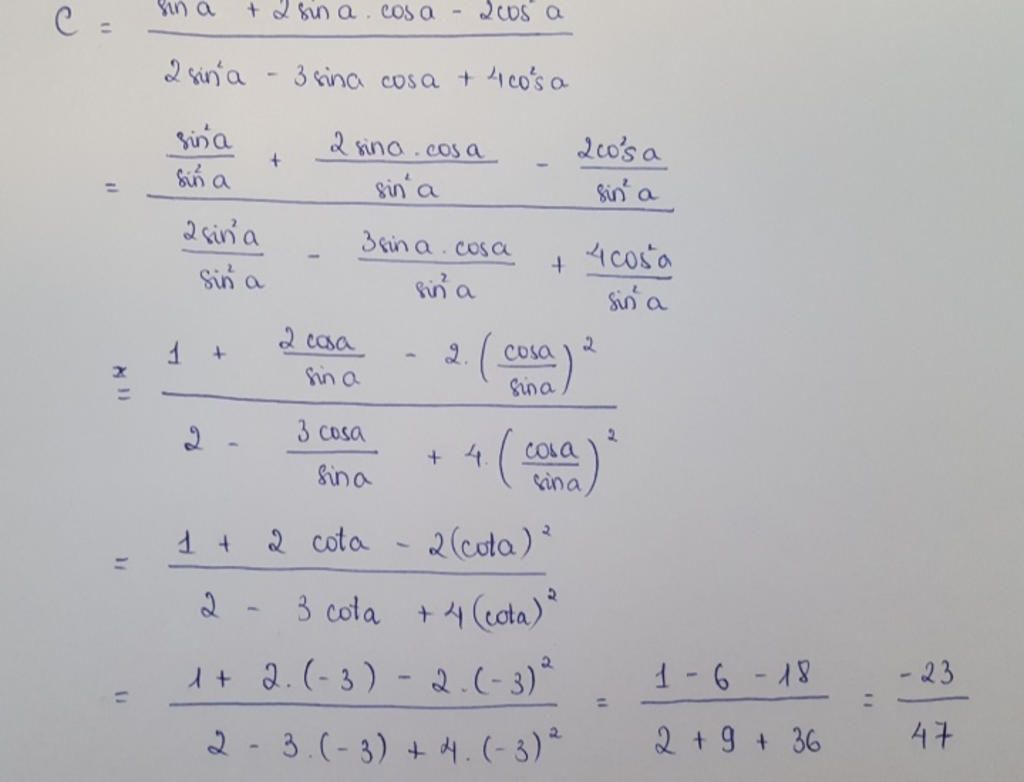 C = (sin²a + 2 sin a . cos a - 2cos²a) / (2 sin²a - 3 sina cosa + 4cos²a)
= (sin²a / sin²a + 2 sina . cosa / sin²a - 2cos²a / sin²a) / (2 sin²a / sin²a - 3 sin a . cosa / sin²a + 4cos²a / sin²a)
= (1 + 2 cosa / sin a - 2. (cosa / sina)²) / (2 - 3 cosa / sina + 4. (cosa / sina)²)
= (1 + 2 cota - 2(cota)²) / (2 - 3 cota + 4(cota)²)
= (1 + 2.(-3) - 2.(-3)²) / (2 - 3.(-3) + 4.(-3)²) = (1 - 6 - 18) / (2 + 9 + 36) = -23 / 47